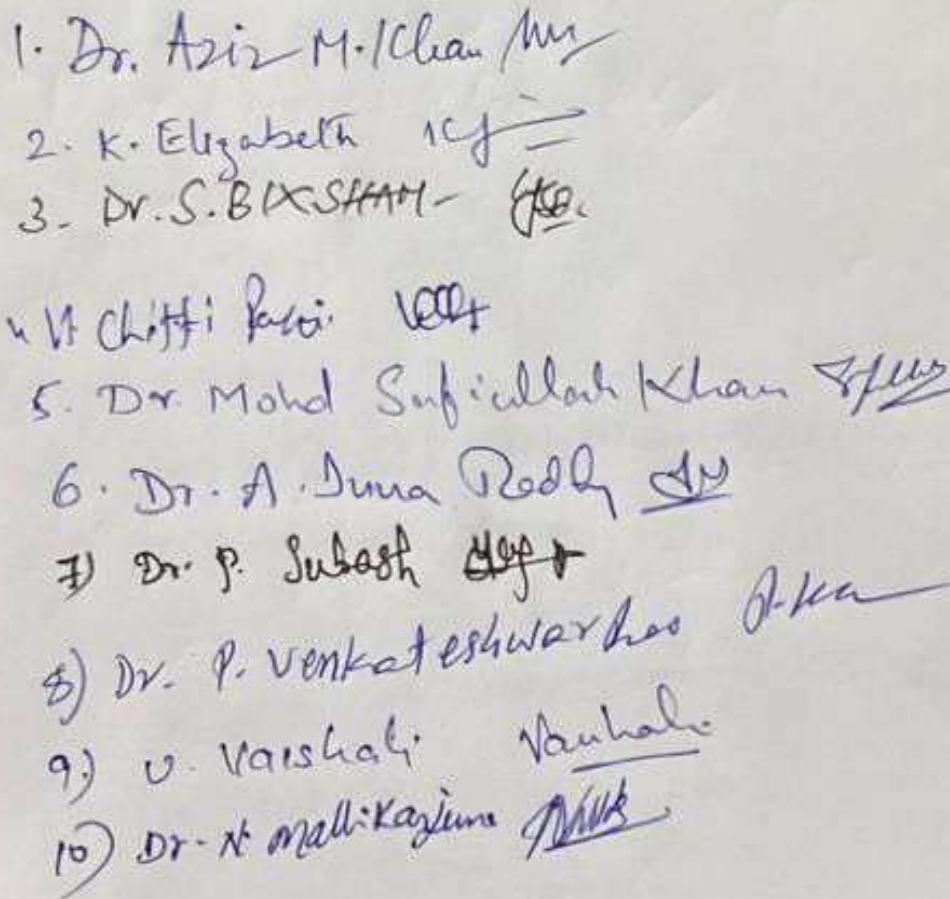 1. Dr. Aziz M. Khan
2. K. Elizabeth
3- Dr. S. BIXSHAM-
Chitti
5. Dr. Mohd Safiullah Khan
6. Dr. A. Reddy
7) Dr. P. Subash
8) Dr. P. Venkateshwar
9) V. Vaishali Vaishali
10) Dr. N Mallikarjuna